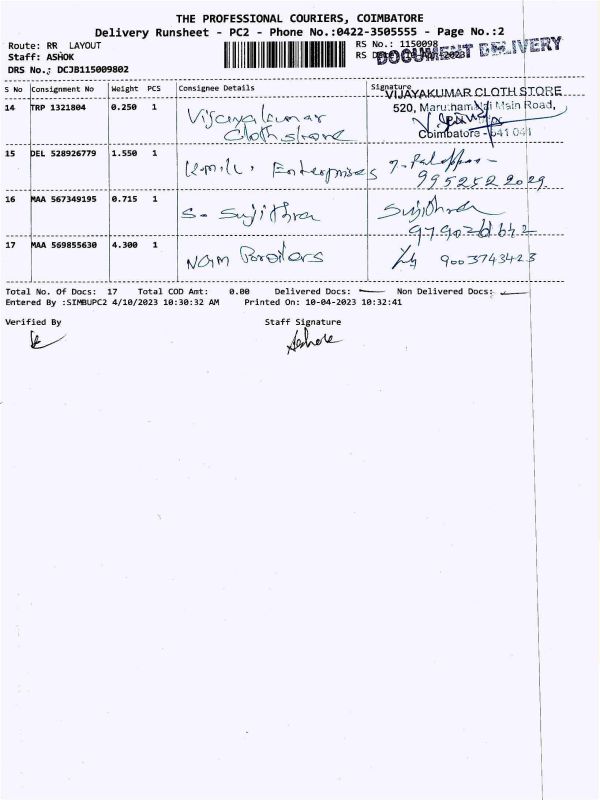 THE PROFESSIONAL COURIERS, COIMBATORE
Delivery Runsheet - PC2 - Phone No.:0422-3505555 - Page No.:2
Route: RR LAYOUT
RS No.: 1150098
Staff: ASHOK
RS
DOCUMENT DELIVERY
DRS No.: DCJB115009802
S No Consignment No Weight PCS Consignee Details Signature
VIJAYAKUMAR CLOTH STORE
14 TRP 1321804 0.250 1 Vijayakumar
520, Maruthamalai Main Road,
Cloth store
Coimbatore - 641 041
15 DEL 528926779 1.550 1
Enterprises
9952522029
16 MAA 567349195 0.715 1 S. Sujithra Sujithra
17 MAA 569855630 4.300 1
9003743423
Total No. Of Docs: 17 Total COD Amt: 0.00 Delivered Docs: Non Delivered Docs:
Entered By :SIMBUPC2 4/10/2023 10:30:32 AM Printed On: 10-04-2023 10:32:41
Verified By Staff Signature